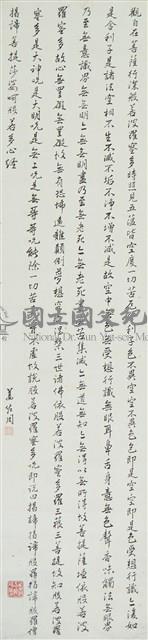 觀自在菩薩行深般若波羅蜜多時照見五蘊皆空度一切苦厄舍利子色不異空空不異色色即是空空即是色受想行識亦復如
是舍利子是諸法空相不生不滅不垢不淨不增不減是故空中無色無受想行識無眼耳鼻舌身意無色聲香味觸法無眼界
乃至無意識界無無明亦無無明盡乃至無老死亦無老死盡無苦集滅道無智亦無得以無所得故菩提薩埵依般若波
羅蜜多故心無罣礙無罣礙故無有恐怖遠離顛倒夢想究竟涅槃三世諸佛依般若波羅蜜多故得阿耨多羅三藐三菩提故知般若波羅
蜜多是大神咒是大明咒是無上咒是無等等咒能除一切苦真實不虛故說般若波羅蜜多咒即說咒曰揭諦揭諦般羅揭諦般羅僧
揭諦菩提莎婆呵般若多心經
國立國父紀念館
National Dr. Sun Yat-sen Mem